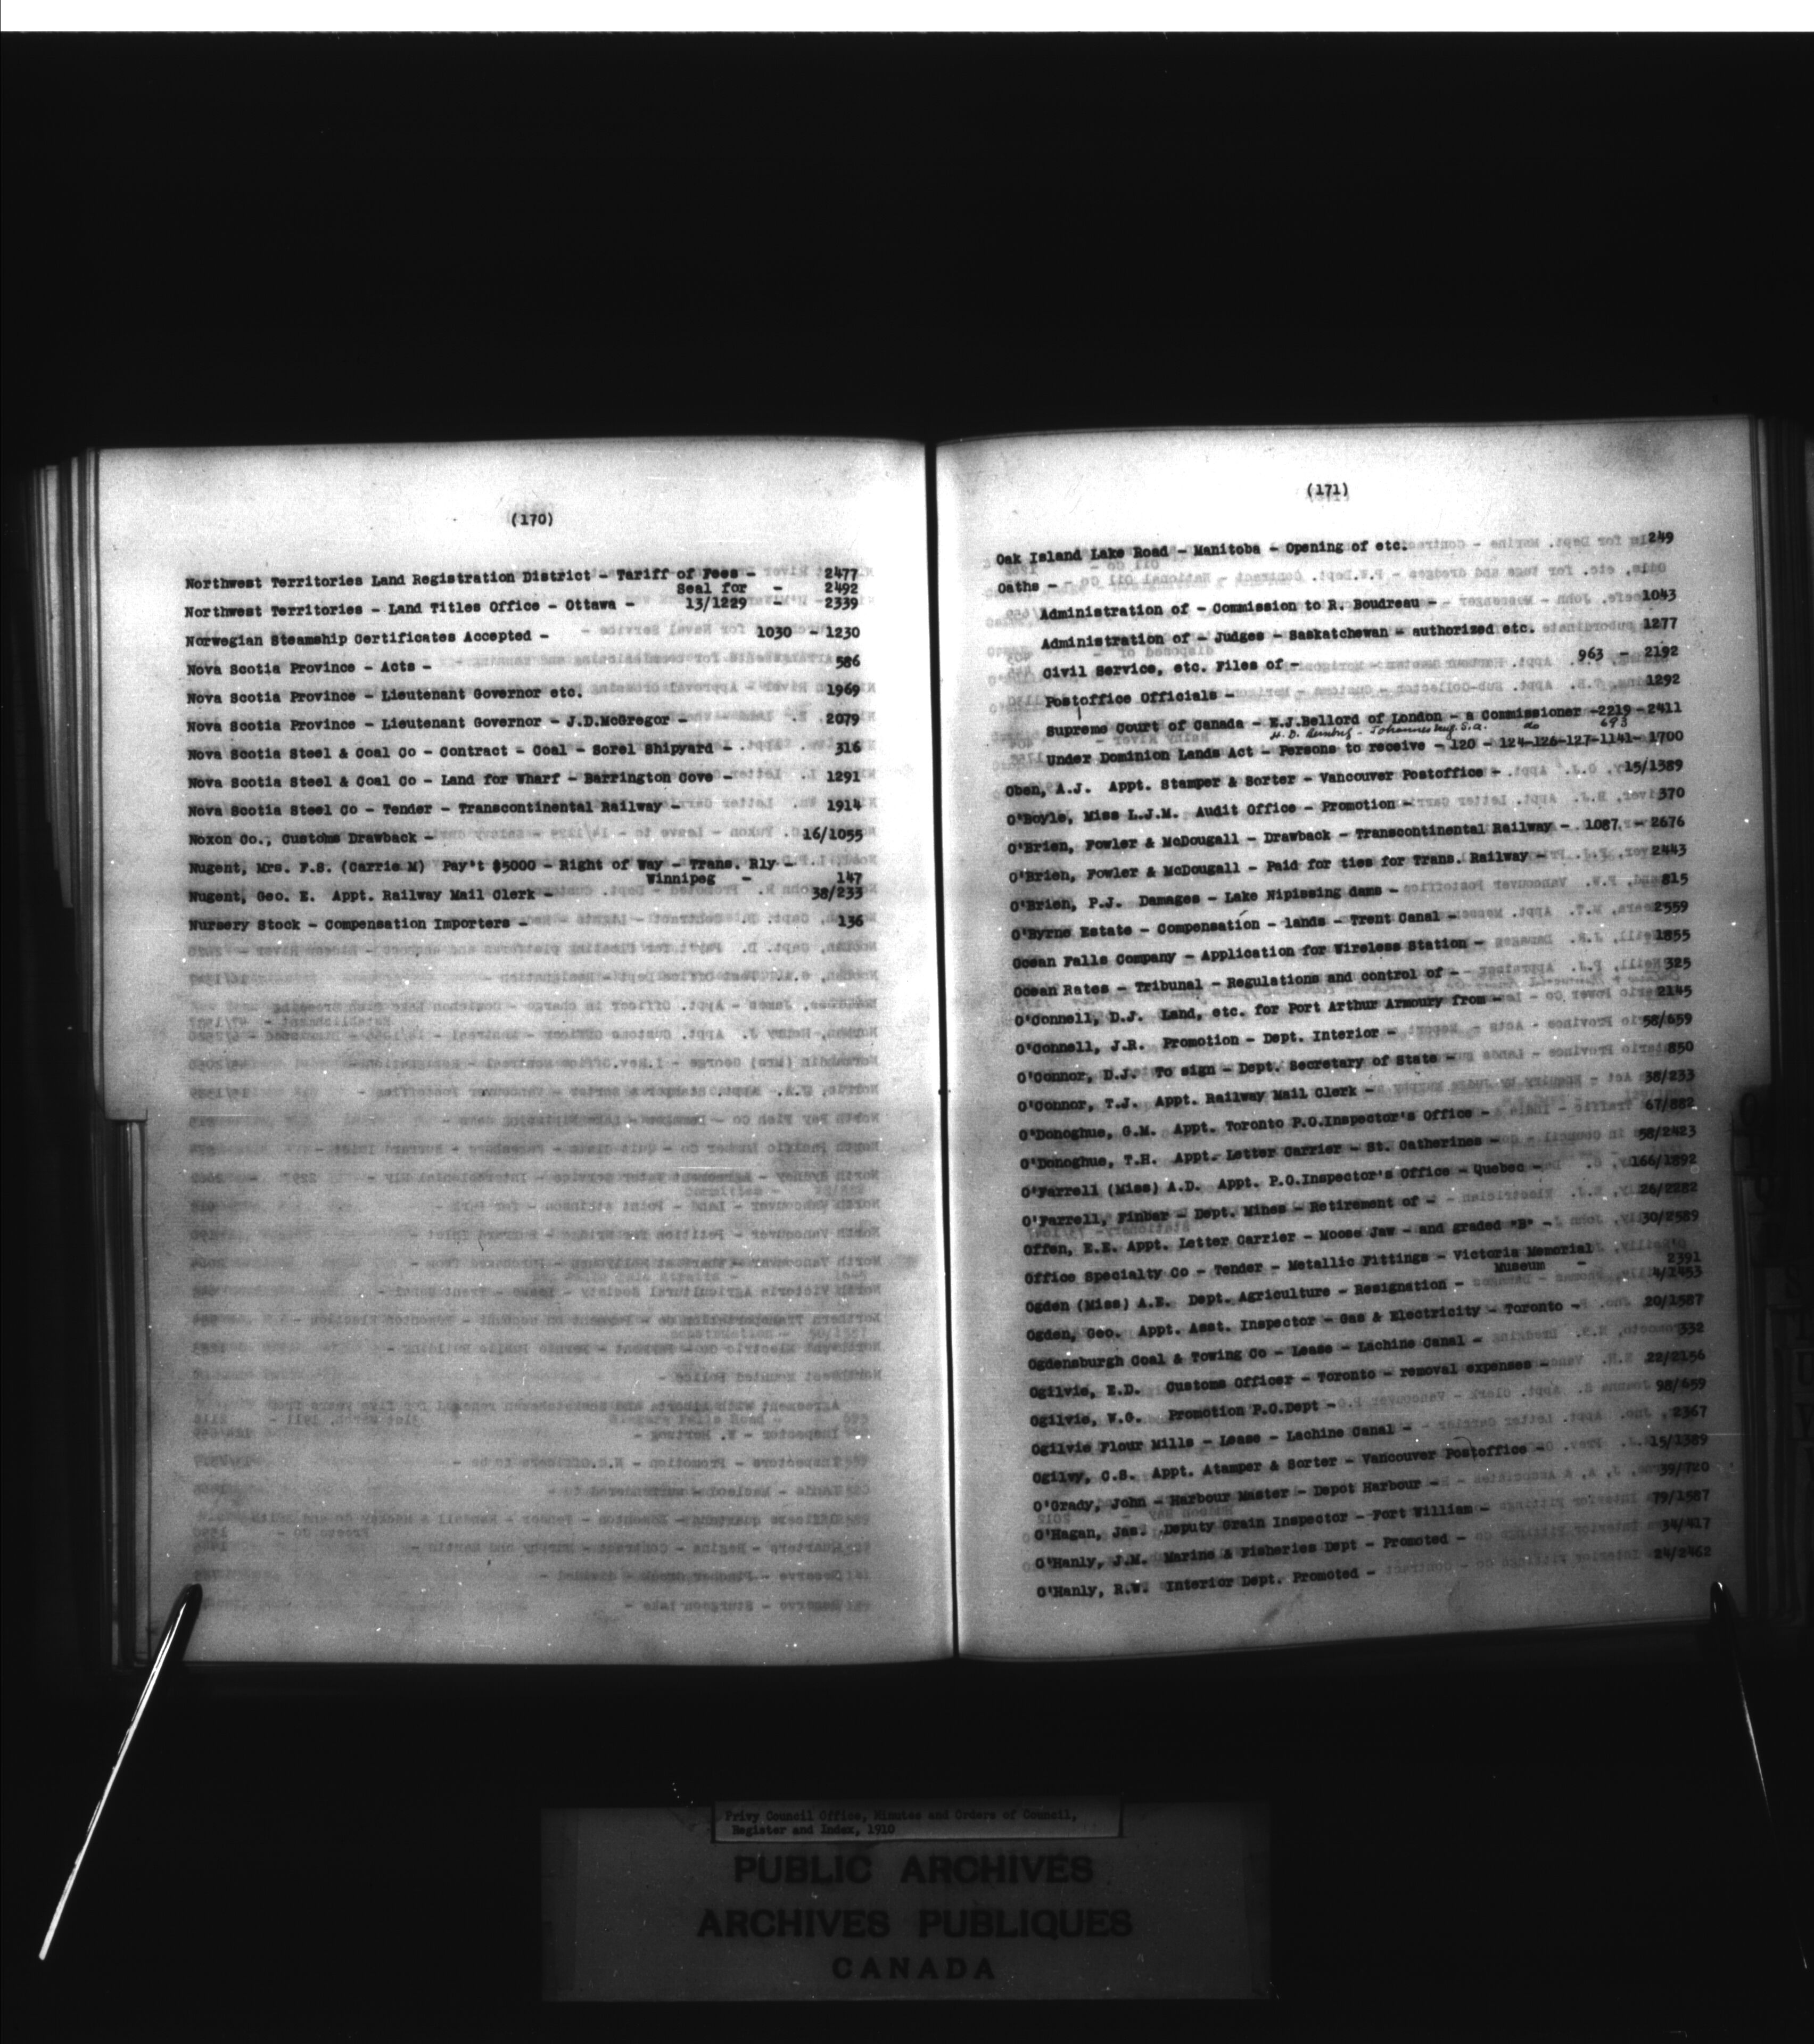 (170)
Northwest Territories Land Registration District - Tariff of Fees - 2477
Seal for - 2492
Northwest Territories - Land Titles Office - Ottawa - 13/1229 - 2339
Norwegian Steamship Certificates Accepted - 1030 - 1230
Nova Scotia Province - Acts - 586
Nova Scotia Province - Lieutenant Governor etc. 1969
Nova Scotia Province - Lieutenant Governor - J.D.McGregor - 2079
Nova Scotia Steel & Coal Co - Contract - Coal - Sorel Shipyard - 316
Nova Scotia Steel & Coal Co - Land for Wharf - Barrington Cove - 1291
Nova Scotia Steel Co - Tender - Transcontinental Railway - 1914
Noxon Co., Customs Drawback - 16/1055
Nugent, Mrs. F.S. (Carrie M) Pay't $5000 - Right of Way - Trans. Rly -
Winnipeg - 147
Nugent, Geo. E. Appt. Railway Mail Clerk - 38/233
Nursery Stock - Compensation Importers - 136
(171)
Oak Island Lake Road - Manitoba - Opening of etc. 249
Oaths -
Administration of - Commission to R. Boudreau - 1043
Administration of - Judges - Saskatchewan - authorized etc. 1277
Civil Service, etc. Files of - 963 - 2192
Postoffice Officials - 1292
Supreme Court of Canada - E.J.Bellord of London - a Commissioner -2219-2411
H. D. - Johannesburg S.a. do 693
Under Dominion Lands Act - Persons to receive - 120 - 124-126-127-1141- 1700
Oben, A.J. Appt. Stamper & Sorter - Vancouver Postoffice - 15/1389
O'Boyle, Miss L.J.M. Audit Office - Promotion - 370
O'Brien, Fowler & McDougall - Drawback - Transcontinental Railway - 1087 - 2676
O'Brien, Fowler & McDougall - Paid for ties for Trans. Railway - 2443
O'Brien, P.J. Damages - Lake Nipissing dams - 815
O'Byrne Estate - Compensation - lands - Trent Canal - 2559
Ocean Falls Company - Application for Wireless Station - 1855
Ocean Rates - Tribunal - Regulations and control of - 325
O'Connell, D.J. Land, etc. for Port Arthur Armoury from - 2145
O'Connell, J.R. Promotion - Dept. Interior - 58/659
O'Connor, D.J. To sign - Dept. Secretary of State - 850
O'Connor, T.J. Appt. Railway Mail Clerk - 38/233
O'Donoghue, G.M. Appt. Toronto P.O.Inspector's Office - 67/882
O'Donoghue, T.H. Appt. Letter Carrier - St. Catherines - 58/2423
O'Farrell (Miss) A.D. Appt. P.O.Inspector's Office - Quebec - 166/1892
O'Farrell, Finbar - Dept. Mines - Retirement of - 26/2282
Offen, E.E. Appt. Letter Carrier - Moose Jaw - and graded "B" - 30/2589
Office Specialty Co - Tender - Metallic Fittings - Victoria Memorial
Museum - 2391
Ogden (Miss) A.E. Dept. Agriculture - Resignation - 4/1453
Ogden, Geo. Appt. Asst. Inspector - Gas & Electricity - Toronto - 20/1587
Ogdensburgh Coal & Towing Co - Lease - Lachine Canal - 332
Ogilvie, E.D. Customs Officer - Toronto - removal expenses - 22/2156
Ogilvie, W.G. Promotion P.O.Dept - 98/659
Ogilvie Flour Mills - Lease - Lachine Canal - 2367
Ogilvy, C.S. Appt. Atamper & Sorter - Vancouver Postoffice - 15/1389
O'Grady, John - Harbour Master - Depot Harbour - 39/720
O'Hagan, Jas. Deputy Grain Inspector - Fort William - 79/1587
O'Hanly, J.M. Marine & Fisheries Dept - Promoted - 34/417
O'Hanly, R.W. Interior Dept. Promoted - 24/2462
Privy Council Office, Minutes and Orders of Council,
Register and Index, 1910
PUBLIC ARCHIVES
ARCHIVES PUBLIQUES
CANADA